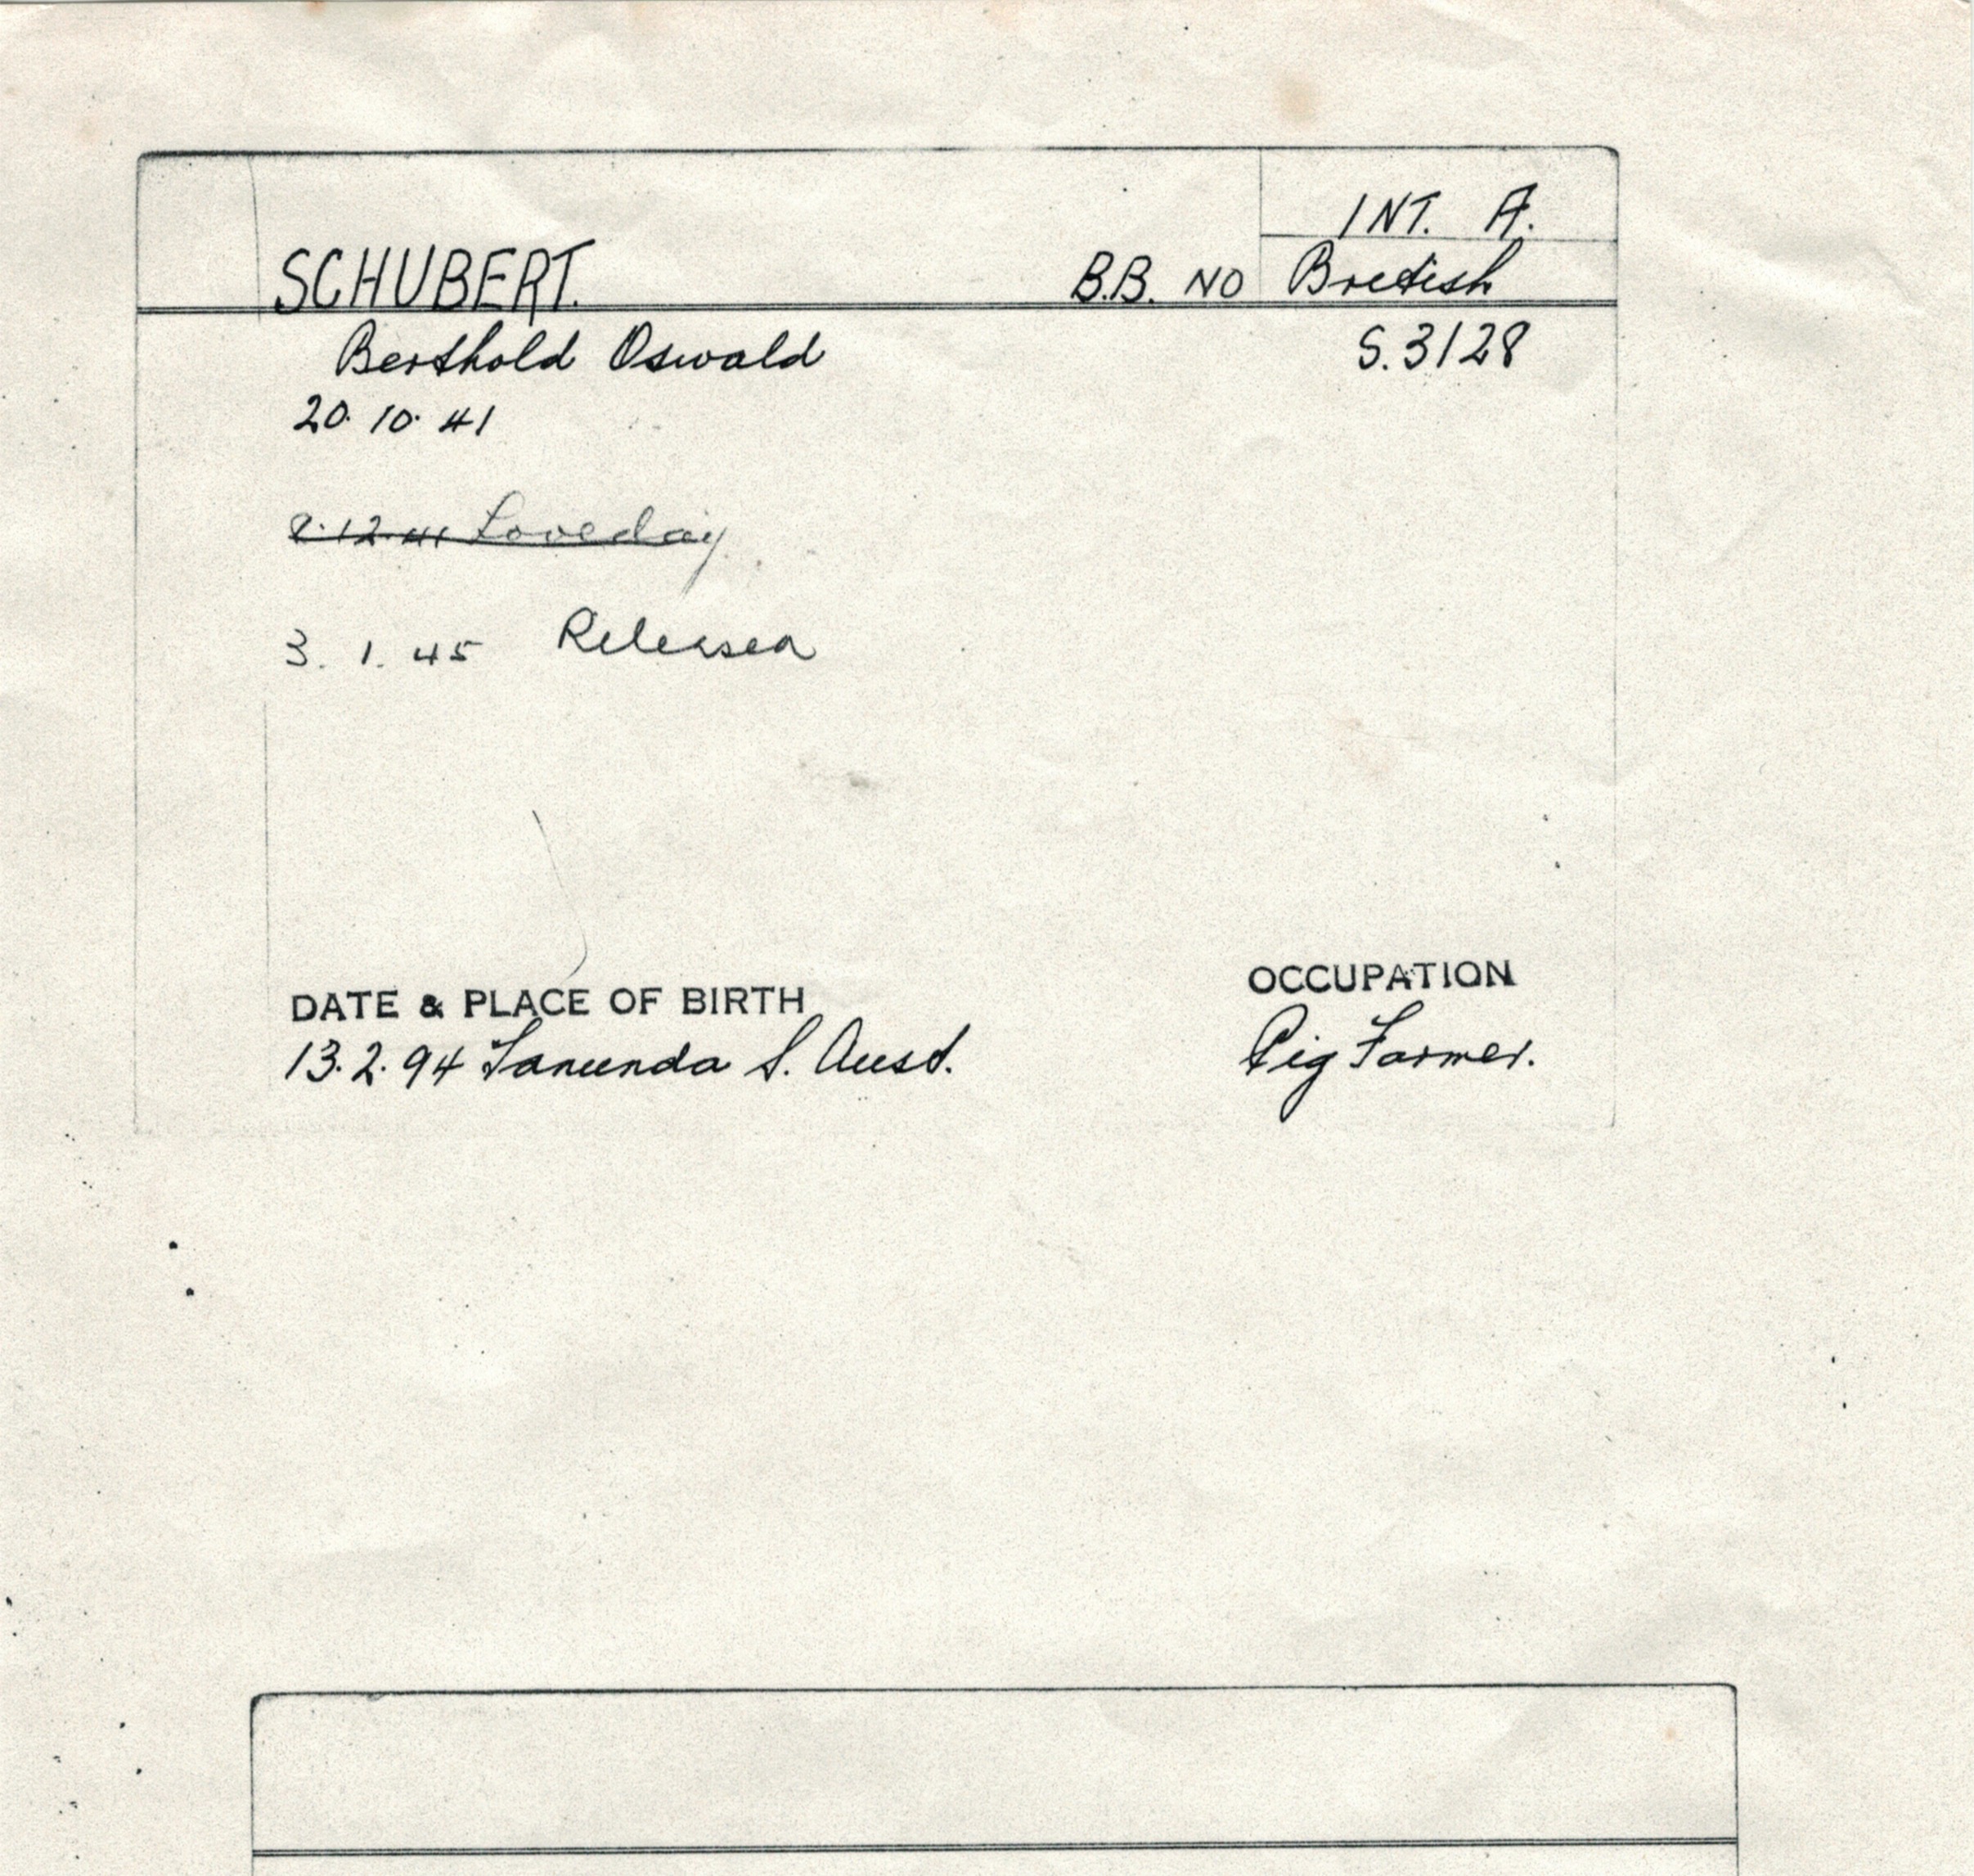 INT. A.
SCHUBERT. B.B. NO British
Berthold Oswald S.3128
20.10.41
8.12.41 Loveday
3.1.45 Released
DATE & PLACE OF BIRTH OCCUPATION
13.2.94 Tanunda S. Aust. Pig Farmer.